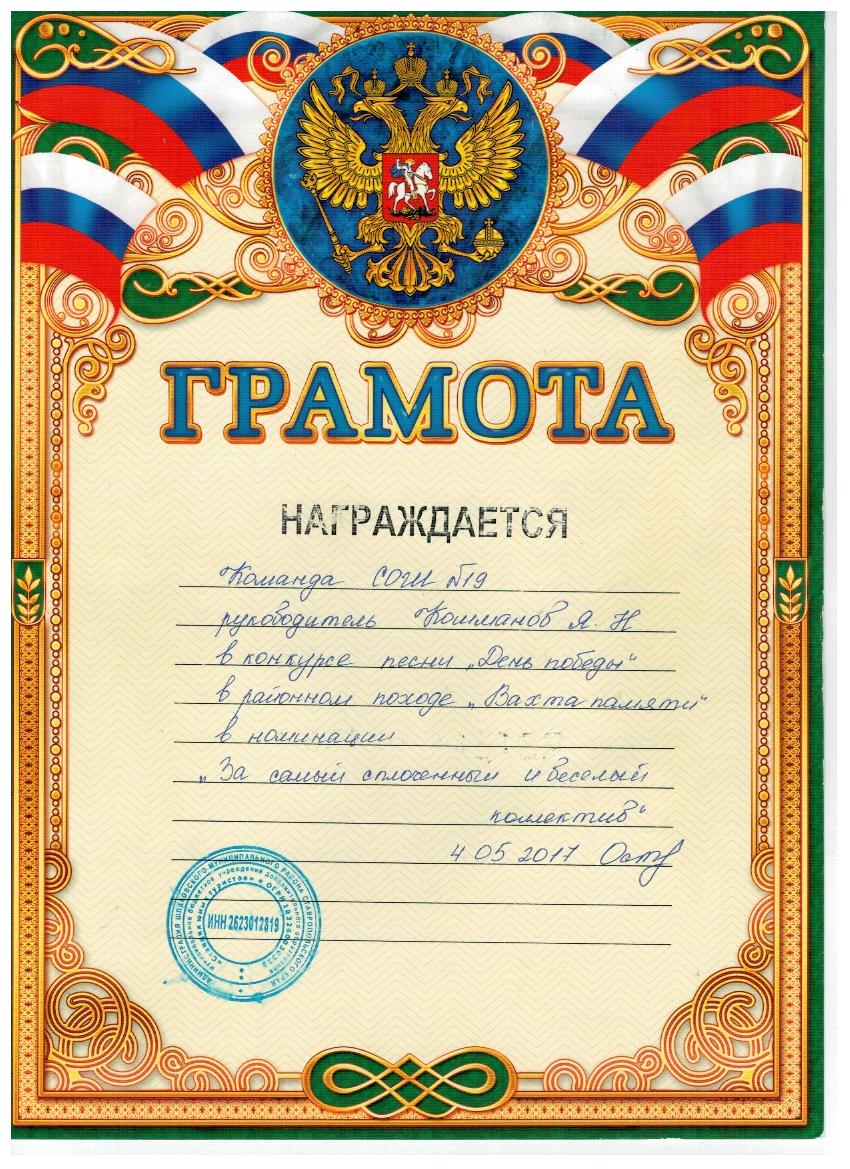 ГРАМОТА
НАГРАЖДАЕТСЯ
Команда СОШ №19
руководитель Кошманов Я. Н
в конкурсе песни „День победы“
в районном походе „Вахта памяти“
в номинации
„За самый сплоченный и веселый
коллектив“
4.05.2017
АДМИНИСТРАЦИЯ ШПАКОВСКОГО МУНИЦИПАЛЬНОГО РАЙОНА СТАВРОПОЛЬСКОГО КРАЯ
муниципальное бюджетное учреждение дополнительного образования
«Станция юных туристов» ОГРН
ИНН 2623012819